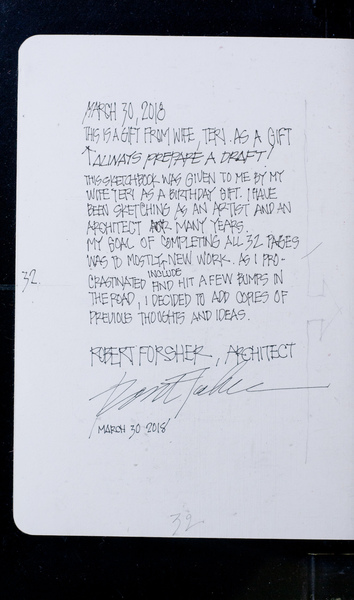 MARCH 30, 2018
THIS IS A GIFT FROM WIFE, TERI. AS A GIFT
* ALWAYS PREPARE A DRAFT!
THIS SKETCHBOOK WAS GIVEN TO ME BY MY
WIFE TERI AS A BIRTHDAY GIFT. I HAVE
BEEN SKETCHING AS AN ARTIST AND AN
ARCHITECT FOR MANY YEARS.
MY GOAL OF COMPLETING ALL 32 PAGES
WAS TO MOSTLY INCLUDE NEW WORK. AS I PRO-
CRASTINATED AND HIT A FEW BUMPS IN
THE ROAD, I DECIDED TO ADD COPIES OF
PREVIOUS THOUGHTS AND IDEAS.
32
ROBERT FORSHER, ARCHITECT
MARCH 30 2018
32